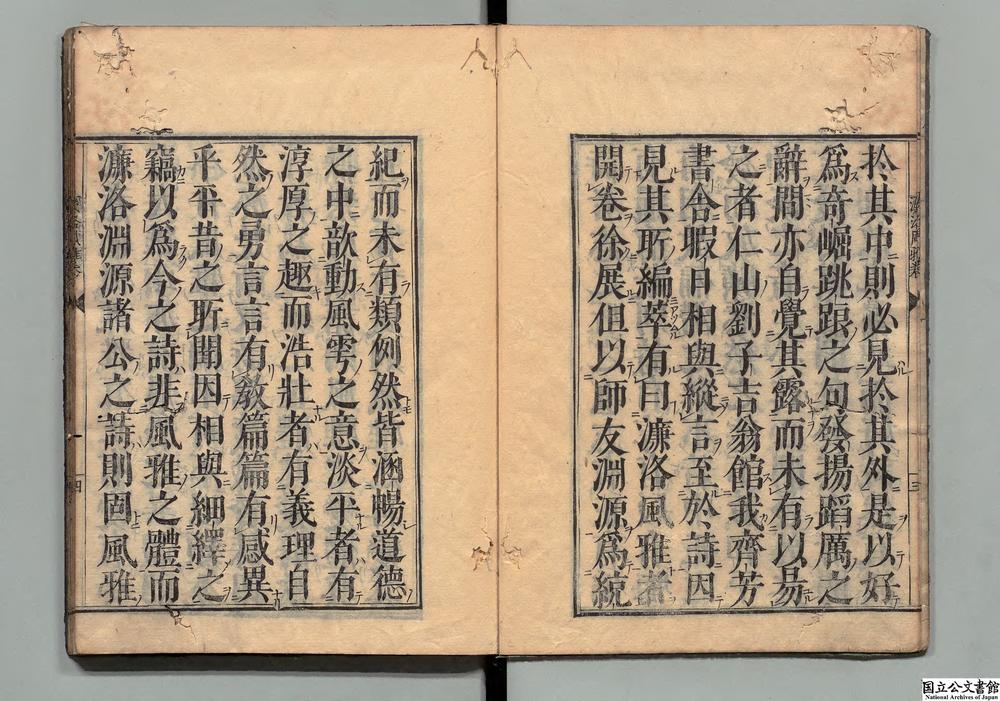 於其中則必見於其外是以好
爲奇崛跳踉之句發揚蹈厲之
辭間亦自覺其露而未有以易
之者仁山劉子吉翁館我齊芳
書舍暇日相與縱言至於詩因
見其所編萃有曰濂洛風雅者
開卷徐展但以師友淵源爲統
紀而未有類例然皆涵暢道德
之中歆動風雩之意淡平者有
淳厚之趣而浩壯者有義理自
然之勇言言有教篇篇有感異
乎平昔之所聞因相與細繹之
竊以爲今之詩非風雅之體而
濂洛淵源諸公之詩則固風雅
三
四
国立公文書館
National Archives of Japan